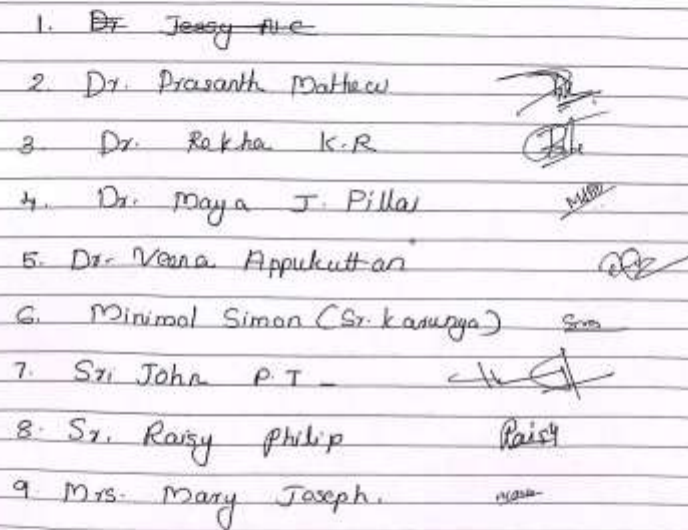 1. Dr Jessy N C
2. Dr. Prasanth Mathew
3. Dr. Rekha K.R
4. Dr. Maya J. Pillai
5. Dr. Veena Appukuttan
6. Minimol Simon (Sr. Karunya)
7. Sri John P.T -
8. Sr. Raisy Philip Raisy
9. Mrs. Mary Joseph.